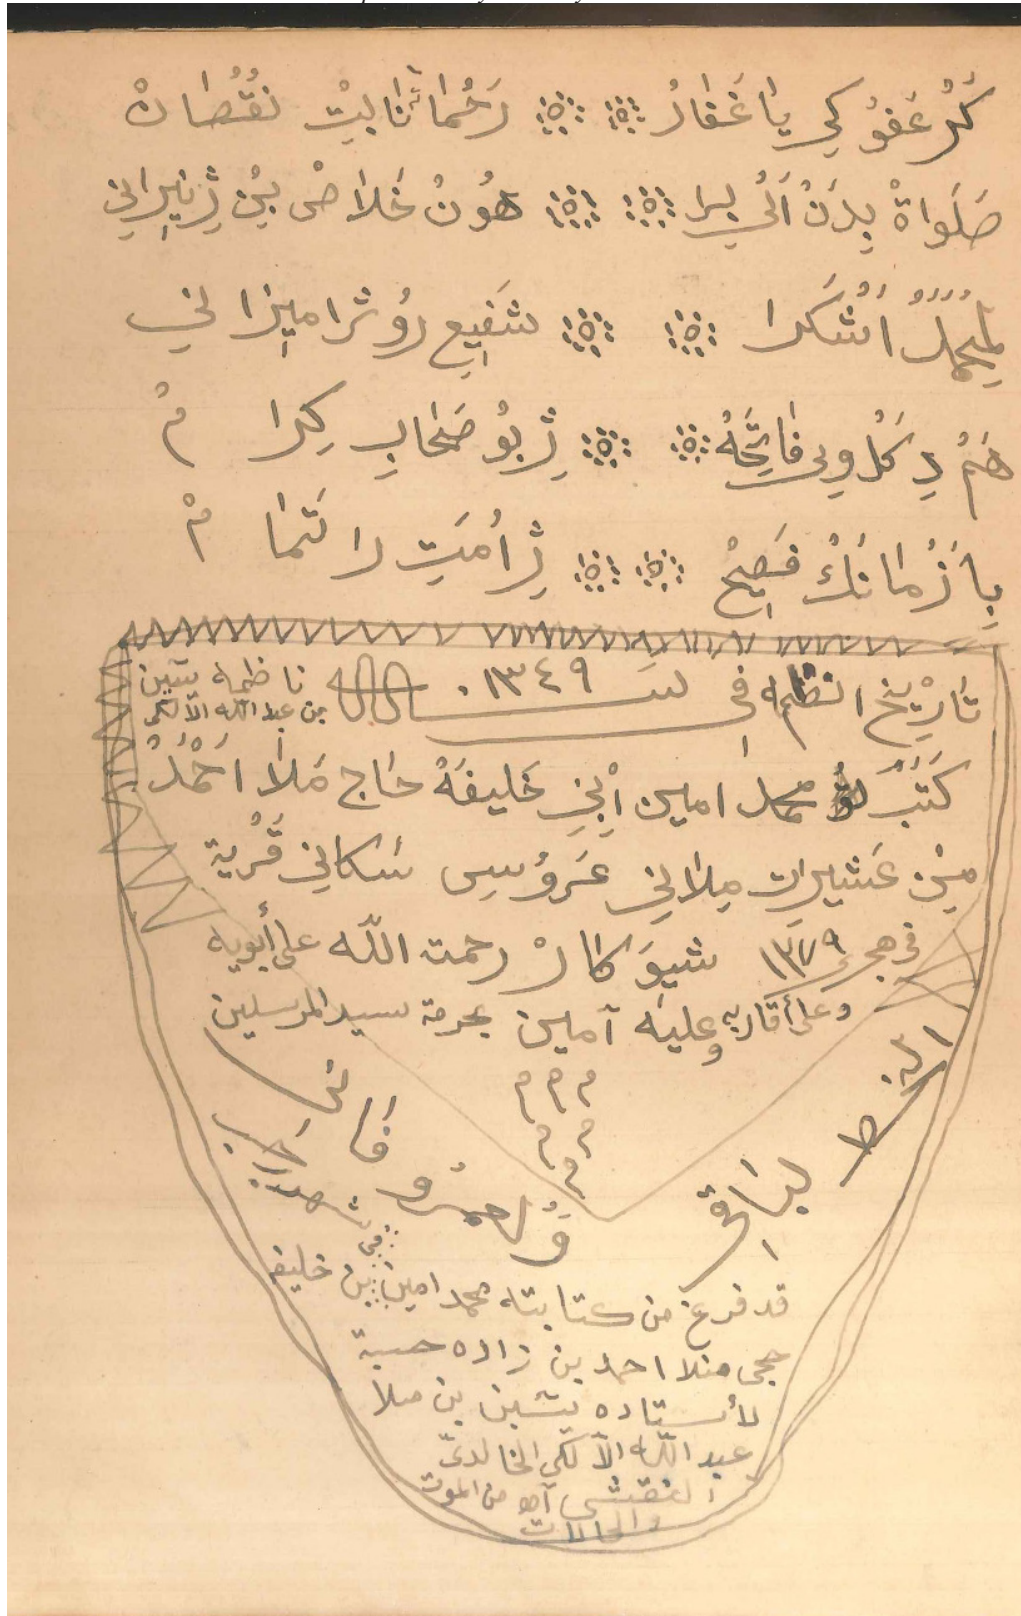 كُڕ عَفوُ كِي يَا غَفَارْ ۞ ۞ رَحْمَاتَا تَابِيْت نُقْصَانْ
صَلَواةْ بِدَنْ اَلِي بِرَا ۞ ۞ هُونْ خَلَاصْ بِنْ ژِنِيرَانِي
لِمُحَمَّدُ اُشْكَرَا ۞ ۞ شَفِيعِ رُوژَا مِيزَانِي
هَمْ دِ كَلْ وِي فَاتِحَهْ ۞ ۞ ژِ بُو صَحَابِ كِرَا مْ
بِاَزْمَانَكْ فَصِيحْ ۞ ۞ ژِ اُمَتِ رَا تَمَا مْ
تَارِيْخ النظمه في سنة ١٣٤٩
ناظمه يسين
بن عبدالله الالكى
كَتَبَ محمد امين اِبْنِ خَليفَهْ حَاج مَلَا احْمَدْ
مِنْ عَشيرات مِلَانِي عَرَوُسِى سَكَانِي قَرْية
في هجرى ١٣٧٩ شيوَكَارْ رحمت اللّه على أبويه
وعلى أقاربه وعليه آمين بحرمة سيد المرسلين
م م م
م م
م
الخط باقى
وَلعمرُ فانى
قد فرغ من كتابته محمد امين بن خليفه
حجى منلا احمد بن زاده حسبة
لأستاده يسين بن ملا
عبد اللّه الألكي الخالدىّ
النقشى آه من الموت
والحالات